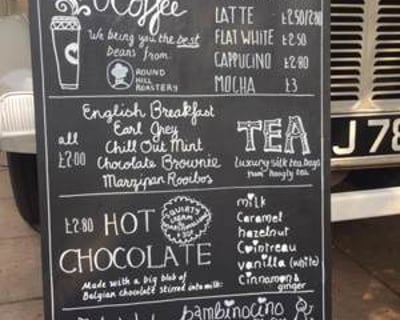 Coffee
We bring you the best
beans from:
ROUND
HILL
ROASTERY
LATTE £2.50/2.80
FLAT WHITE £2.50
CAPPUCINO £2.80
MOCHA £3
English Breakfast
Earl Grey
all
£2.00
Chill Out Mint
Chocolate Brownie
Marzipan Rooibos
TEA
luxury silk tea bags
from
£2.80 HOT
CHOCOLATE
SQUIRTY
CREAM
50P
Made with a big blob of
Belgian chocolate stirred into milk:
milk
Caramel
hazelnut
Cointreau
vanilla (white)
Cinnamon &
ginger
bambinocino
J 78